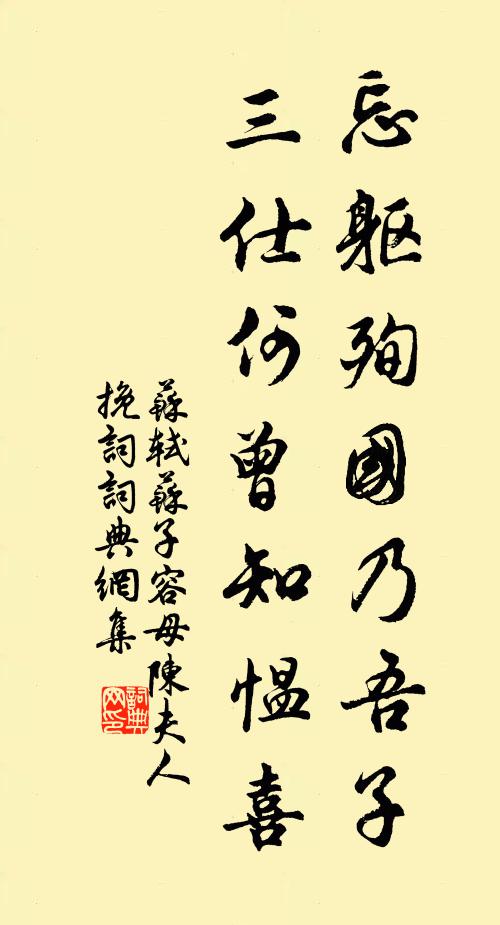 忘軀殉國乃吾子
三仕何曾知愠喜
蘇軾蘇子容母陳夫人
挽詞詞典網集
詞典网印